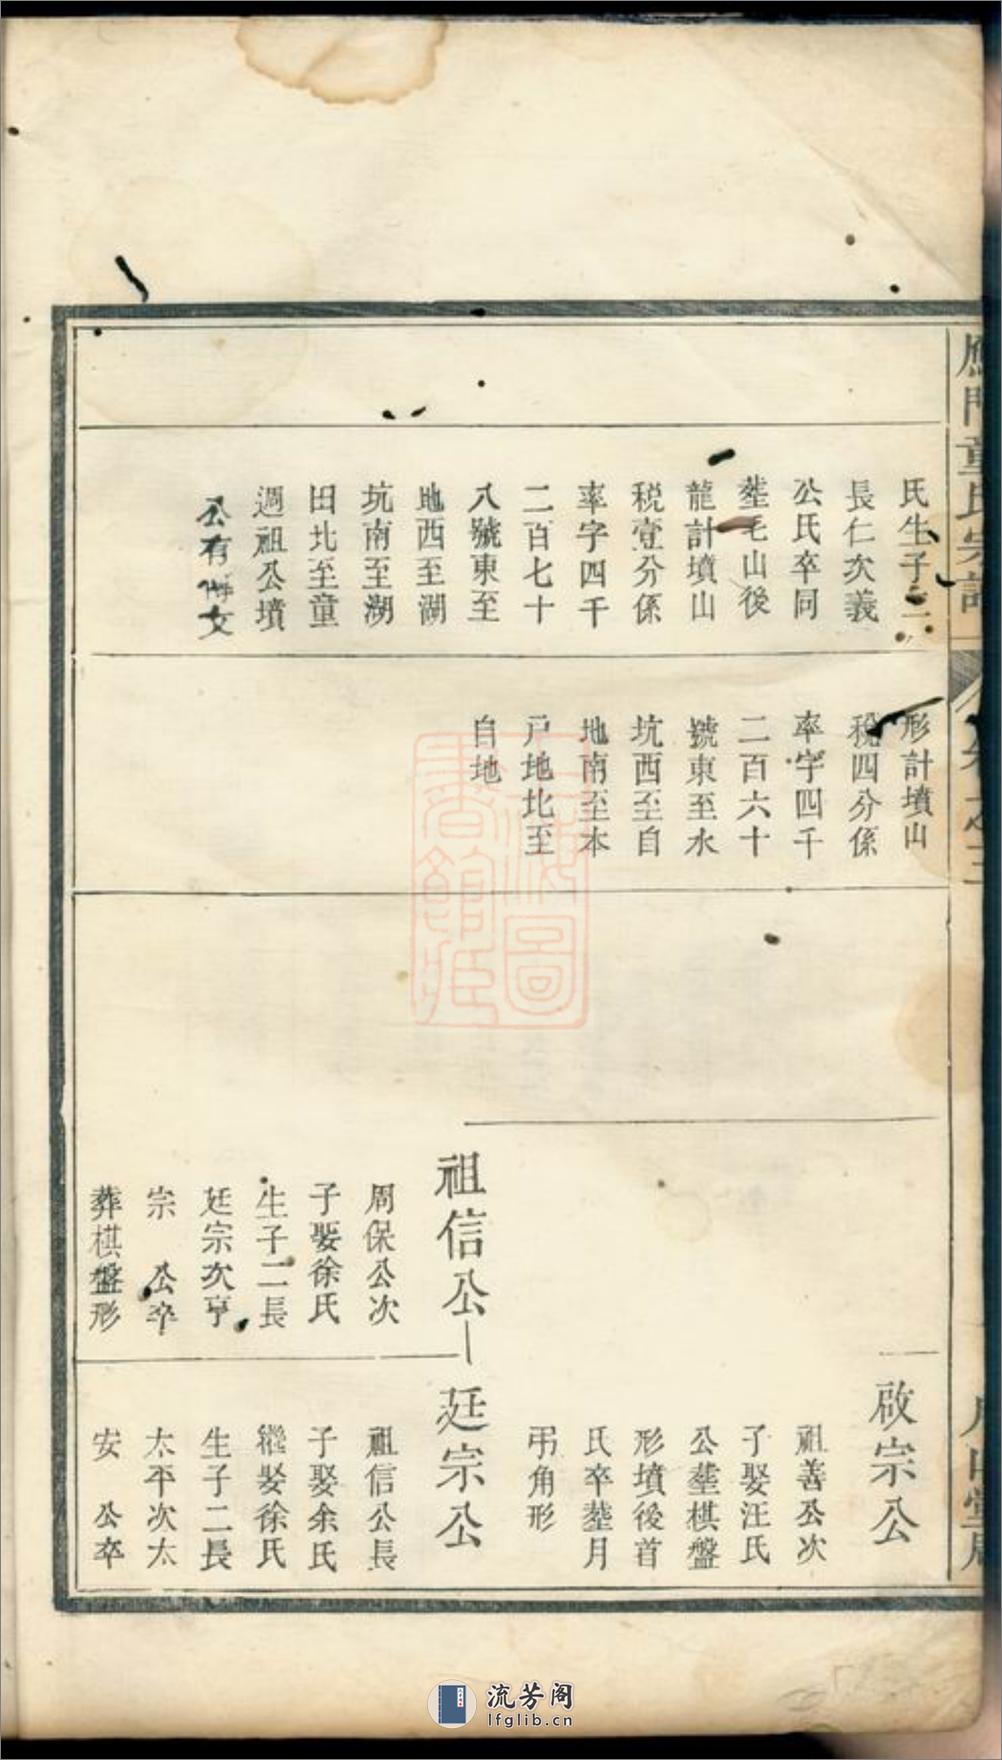 雁門童氏宗譜
卷之三
氏生子二
長仁次義
公氏卒同
塟毛山後
龍計墳山
稅壹分係
率字四千
二百七十
八號東至
地西至湖
坑南至湖
田北至童
週祖公墳
公有
女
形計墳山
稅四分係
率字四千
二百六十
號東至水
坑西至自
地南至本
戶地北至
自地
啟宗公
祖善公次
子娶汪氏
公塟棋盤
形墳後首
氏卒塟月
弔角形
祖信公
周保公次
子娶徐氏
生子二長
廷宗次亨
宗 公卒
葬棋盤形
廷宗公
祖信公長
子娶余氏
繼娶徐氏
生子二長
太平次太
安 公卒
上海圖書館藏
流芳阁
lfglib.cn